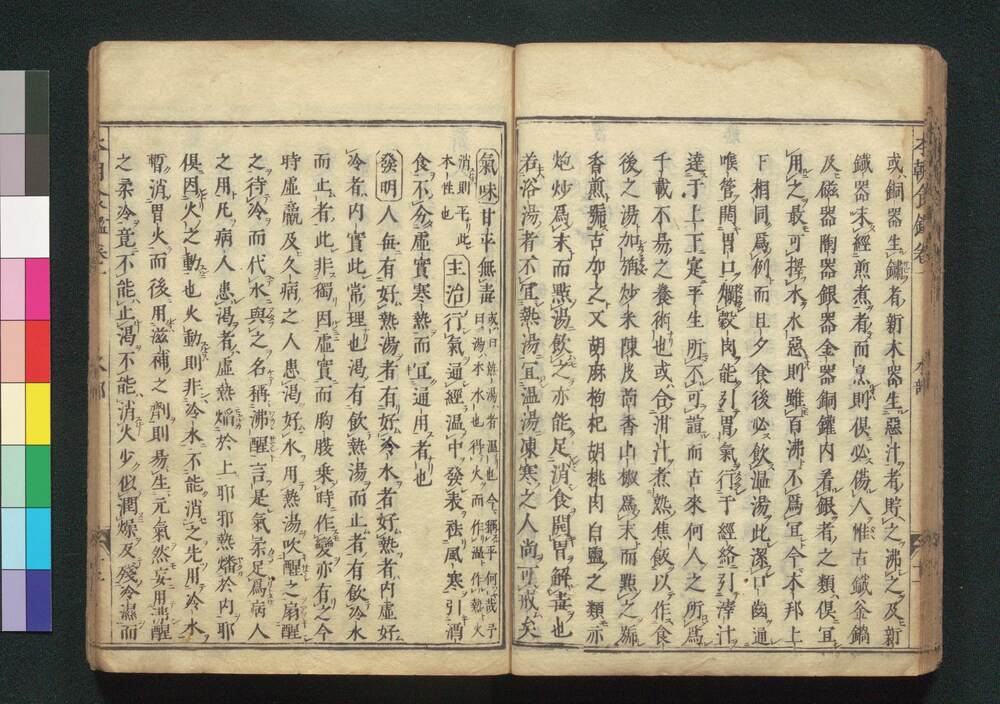 或銅器生鏽者新木器生惡汁者貯之沸之及新
鐵器未經煎煮者而烹則俱必傷人惟古鐵釜鍋
及磁器陶器銀器金器銅鑵内着銀者之類俱宜
用之最可擇水水惡則雖百沸不爲宜今本邦上
下相同爲例而且夕食後必飲温湯此潔口齒通
喉管開胃口爛穀肉能引胃氣行于經絡引滓汁
達于上下寔平生所不可䜿而古來何人之所爲
千載不易之養術也或合泔汁煮熟焦飯以作食
後之湯加糯炒米陳皮茴香山椒爲末而點之
香煎古加之又胡麻枸杞胡桃肉白鹽之類亦
炮炒爲末而點湯飲之亦能足消食開胃解毒也
若夫浴湯者不宜熱湯宜温湯凍寒之人尚可戒矣
氣味甘平無毒或曰熱湯者温也今稱平何哉予
曰湯本水也得火而作温作熱火
消則平此
本性也
主治行氣通經温中發表祛風寒引消
食不分虛實寒熱而宜通用者也
發明人毎有好熱湯者有好冷水者好熱者内虛好
冷者内實此常理也渴有飲熱湯而止者有飲冷水
而止者此非獨因虛實而胸膜乗時作變亦有之今
時虛羸及久病之人患渴好水用熱湯吹醒之扇醒
之待冷而代水與之名稱沸醒言是氣柔足爲病人
之用凡病人患渴者虛熱熖於上耶邪熱燔於内耶
俱因火之動也火動則非冷水不能消之先用冷水
暫消胃火而後用滋補之劑則易生元氣然妄用沸醒
之柔冷竟不能止渴不能消火少似潤燥及殘冷濕而
本朝食鑑卷一
水部
本朝食鑑卷一
水部